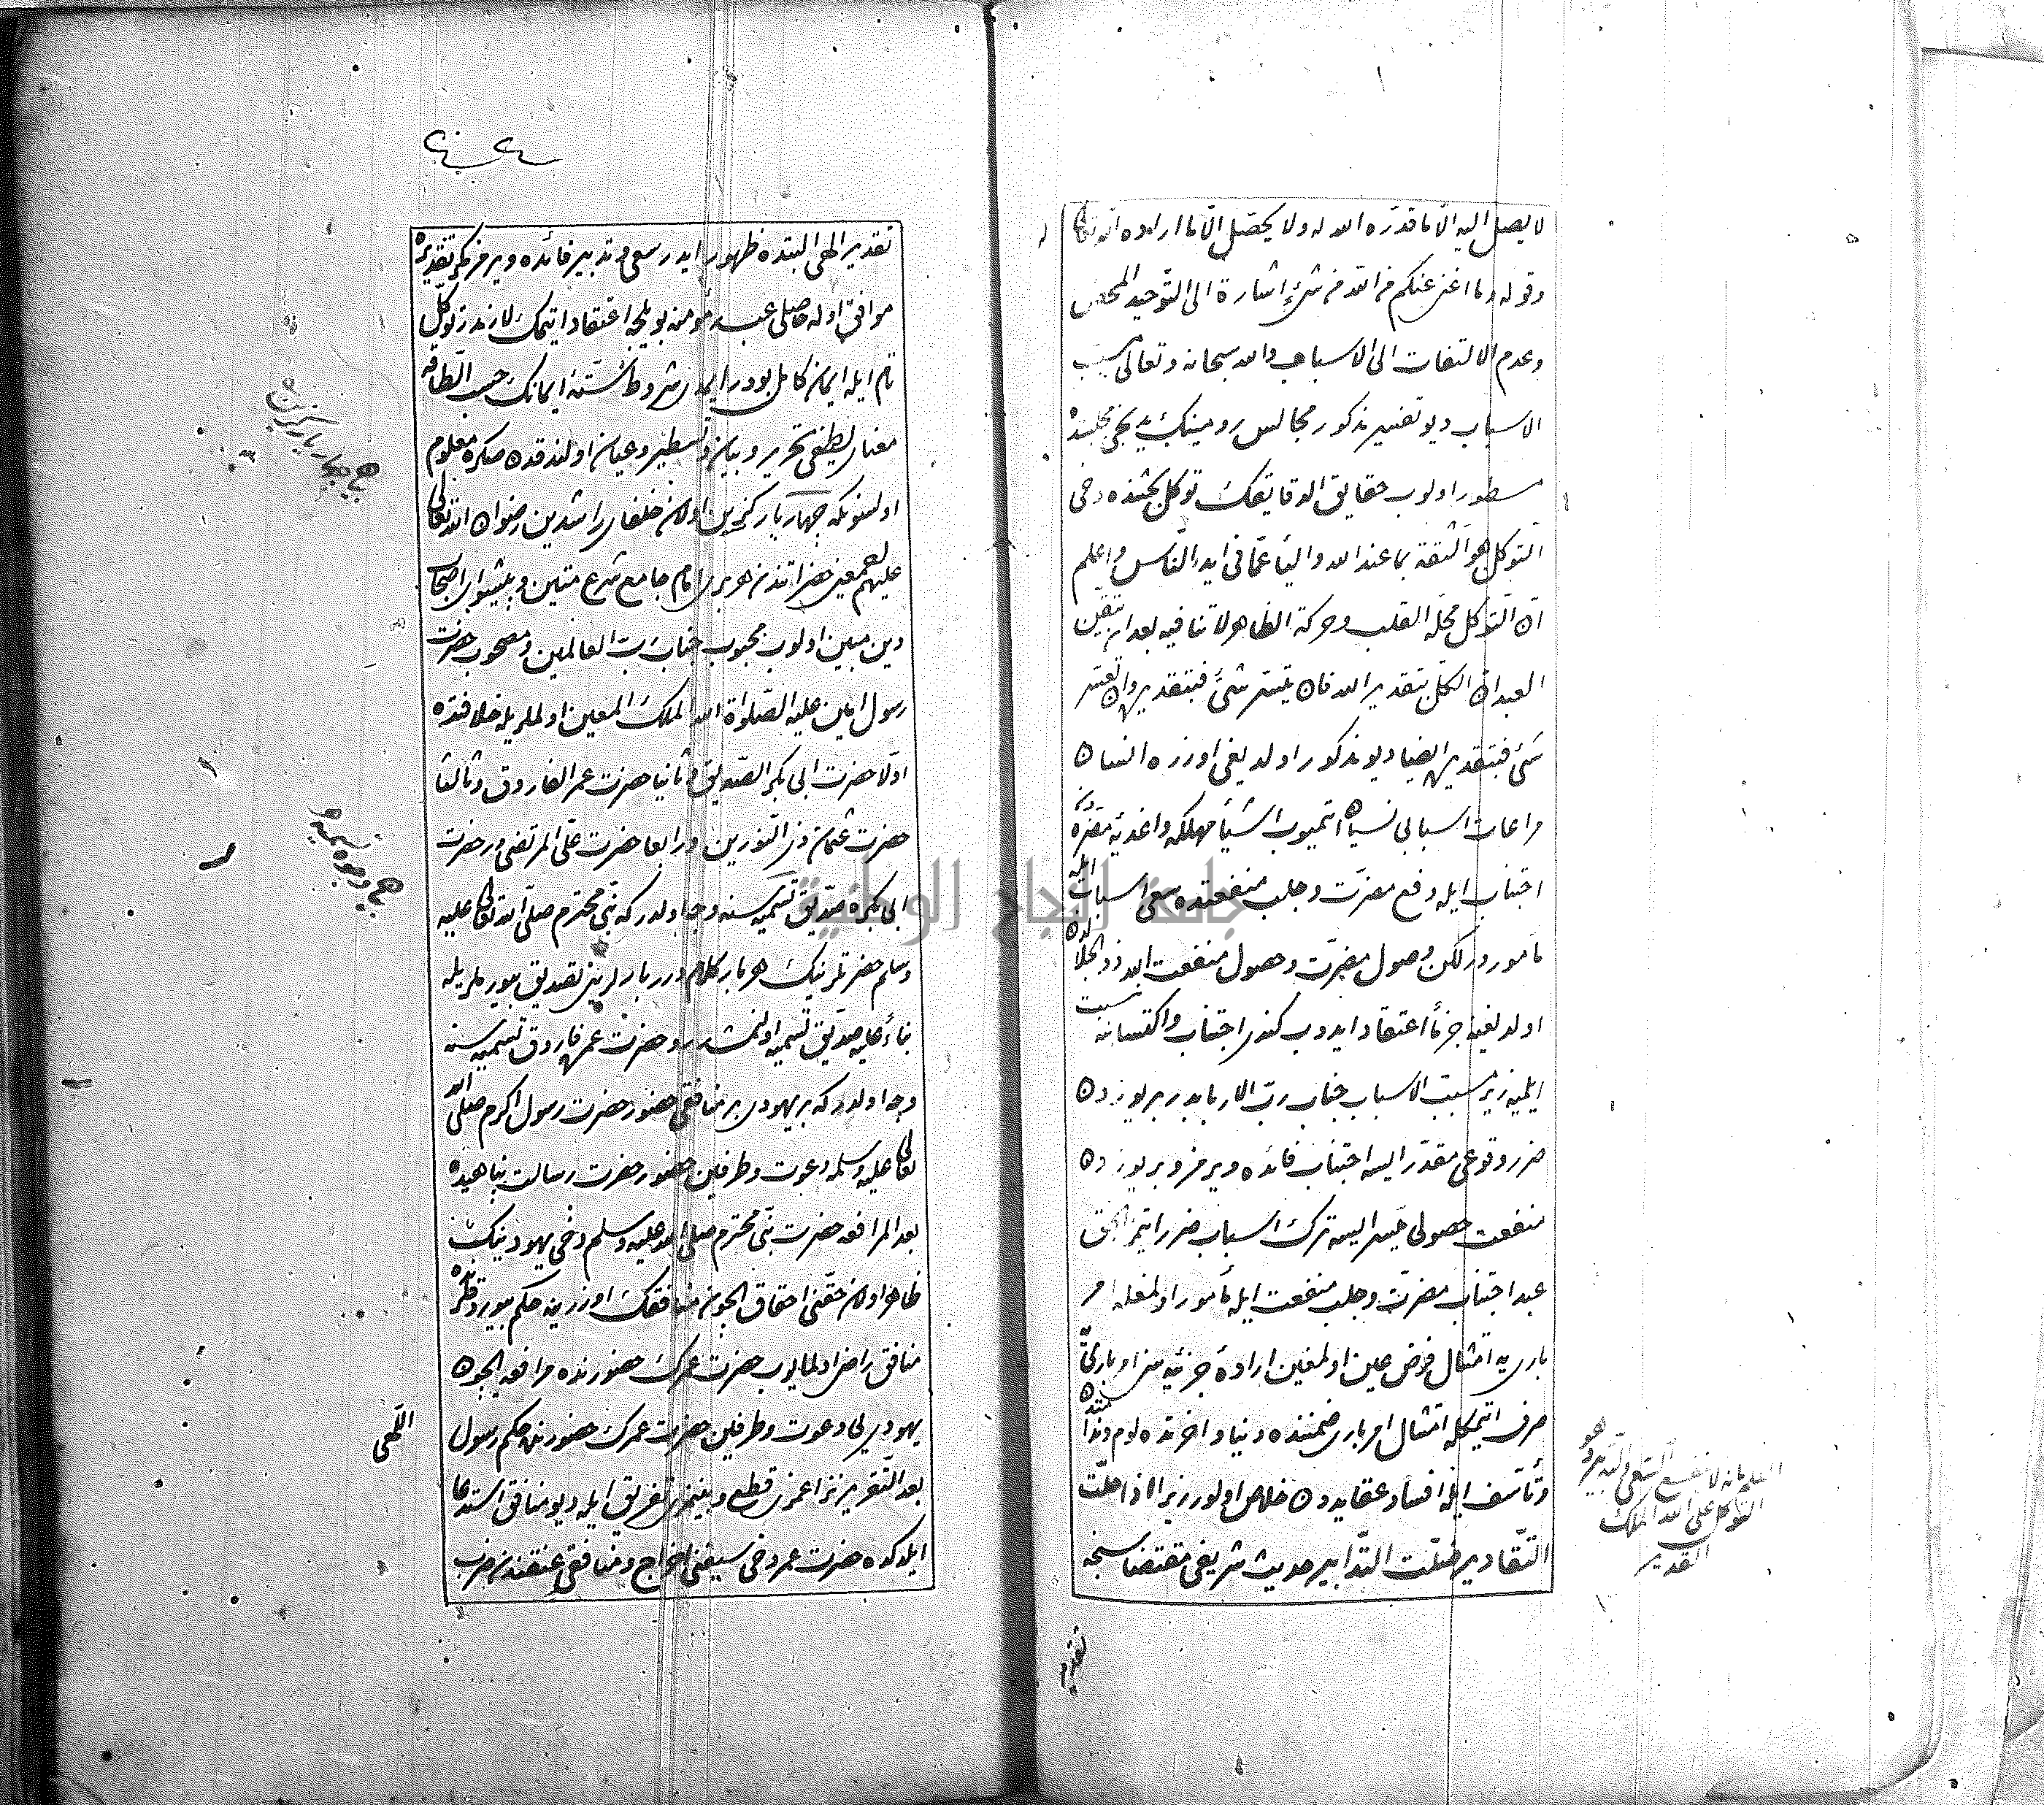 لا يصل اليه الّا ما قدّره الله له ولا يحصّل الّا ما اراده الله تعالى
وقوله وما اغنى عنكم من الله من شئٍ اشارة الى التّوحيد المحض
وعدم الالتفات الى الاسباب والله سبحانه وتعالى مسبّب
الاسباب ديو تفسير مذكور مجالس رومينك يدنجى مجلسنده
مسطور اولوب حقايق الدقايقك توكل بحثنده دخى
التّوكل هو الثّقة بما عند الله واليأس عمّا فى ايدى النّاس واعلم
انّ التّوكل محلّه القلب وحركة الظاهر لا تنافيه بعد ان تيقّن
العبد ان الكلّ بتقدير الله فان تيسّر شئ فبتقديره وان تعسّر
شئ فبتقديره ايضا ديو مذكور اولديغى اوزره انسان
مراعات اسبابى نسيان اتميوب اشياء مهلكه واغديه مضرّه دن
اجتناب ايله دفع مضرّت وجلب منفعتده سعى اسباب ايله
مأموردر لكن وصول مضرّت وحصول منفعت الله ذو الجلالدن
اولديغنه جزماً اعتقاد ايدوب كندى اجتناب واكتسابنه نسبت
ايلميه زيرا مسبّب الاسباب جناب ربّ الاربابدر بر يوزدن
ضرر وقوعى مقدّر ايسه اجتناب فائده ويرمز و بر يوزدن
منفعت حصولى ميسر ايسه ترك اسباب ضرر ايتمز انجق
عبد اجتناب مضرّت وجلب منفعت ايله مأمور اولمغله امر
بارى يه امتثال فرض عين اولمغين ارادهٔ جزئيه سن اول
صرف اتمكله امتثال امر بارى ضمننده دنيا واخرتده لوم وندامتدن
وتأسّف ايله افساد عقايددن خلاص اولور زيرا اذا حلّت
التّقادير ضلّت التّدابير حديث شريفى مقتضاسنجه
العلم بانه لا ينفع السّعى والتدبير وهو
التوكل على الله الملك
القدير
تقدير
تقدير الهى البتده ظهور ايدر سعى وتدبير فائده ويرمز مكر تقديره
موافق اوله حاصلى عبد مؤمنه بويلجه اعتقاد ايتمك لازمدر توكّل
تام ايله ايمان كامل بودر ايمدى شروط ستّۀ ايمانك حسب الطّاقه
معناى لطيفى تحرير وبيان وتسطير وعيان اولندقدن صكره معلوم
اولسونكه چهار يار كزين اولان خلفاى راشدين رضوان الله تعالى
عليهم اجمعين حضراتندن هر برى امام جامع شرع متين وپيشواى اصحاب
دين مبين اولوب محبوب جناب ربّ العالمين ومصحوب حضرت
رسول امين عليه الصّلواة الله الملك المعين اولملريله خلافتده
اوّلا حضرت ابى بكر الصّديق وثانيا حضرت عمر الفاروق وثالثا
حضرت عثمان ذى النّورين ورابعا حضرت على المرتضى در حضرت
ابى بكره صدّيق تسميه سنه وجه اولدر كه نبىّ محترم صلّى الله تعالى عليه
وسلم حضرتلرنيك هر بار كلام درر بارلرينى تصديق بيورملريله
بناءً عليه صدّيق تسميه اولنمشدر و حضرت عمره فاروق تسميه سنه
وجه اولدر كه بر يهودى بر منافقى حضور حضرت رسول اكرم صلّى الله
تعالى عليه وسلمه دعوت وطرفين حضور حضرت رسالت پناهيده
بعد المرافعه حضرت نبىّ محترم صلى الله عليه وسلم دخى يهودينك
ظاهر اولان حقّنى احقاق ايچون منافقك اوزرينه حكم بيوردقلرنده
منافق راضى اولمايوب حضرت عمرك حضورنده مرافعه ايچون
يهودى يى دعوت وطرفين حضرت عمرك حضورينه حكم رسول
بعد التّقرير نزاعمزى قطع وبينمزى تفريق ايله ديو منافق استدعا
ايلدكده حضرت عمر دخى سيفنى اخراج ومنافقى عنقندن ضرب
چهار يار كزين
وجوه تسميه
اللّهى